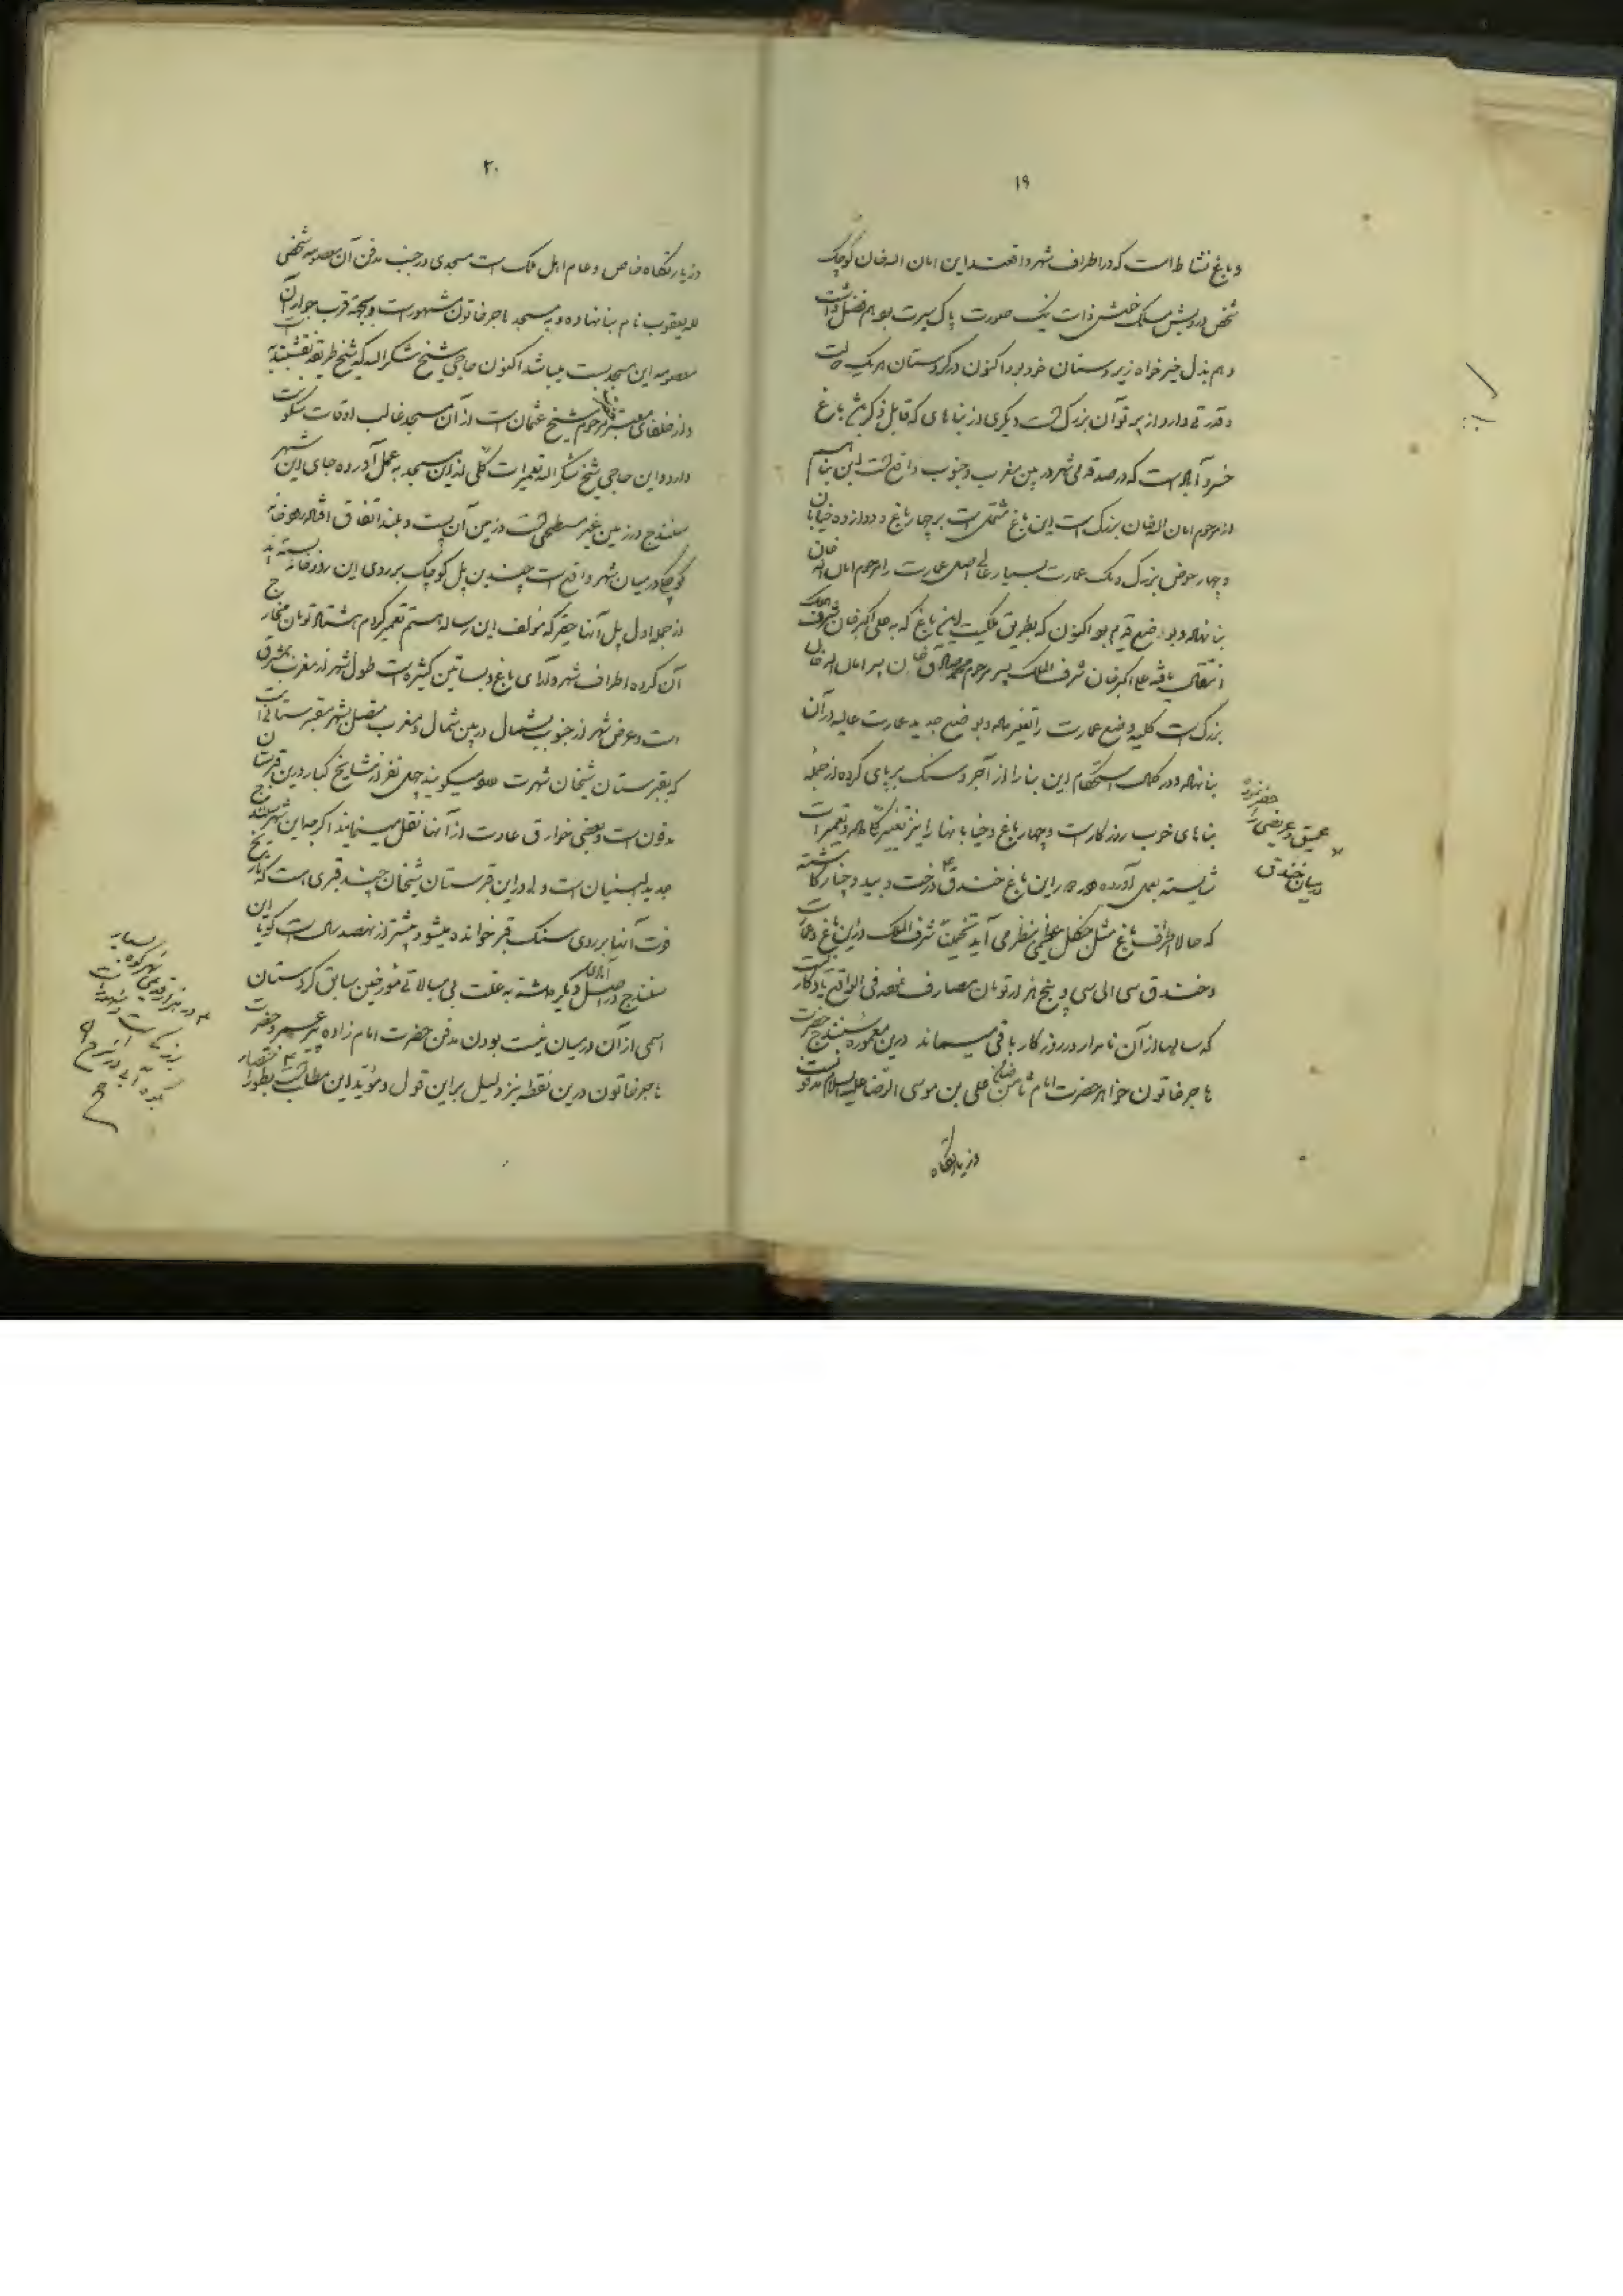 ۱۹
و باغ نشاط است که در اطراف شهر واقعند این امان الله خان کوچک
شخص درویش مسلک خوش ذات نیک صورت پاک سیرت بود هم فضل داشت
و هم بذل خیرخواه زیردستان خود بود اکنون در کردستان هر یک
و قدرتی دارد از پرتو آن بزرگ است دیگری از بناهای که قابل ذکر باغ
خسروآباد است که در صد قدمی شهر در بین مغرب و جنوب واقع است این بنا هم
از مرحوم امان الله خان بزرگ است این باغ مشتمل است بر چهار باغ و دوازده خیابان
و چهار حوض بزرگ و یک عمارت بسیار عالی اصل عمارت را مرحوم امان الله خان
بنا نهاده و بوضع قدیم بود اکنون که بطریق ملکیت این باغ که به علی اکبر خان شرف الملک
انتقال یافته علی اکبر خان شرف الملک پسر مرحوم محمد صادق خان بن پسر امان الله خان
بزرگ است کلیه وضع عمارت را تغییر داده و بوضع جدید عمارت عالیه در آن
بنا نهاده و در کمال استحکام این بنا را از آجر و سنگ برپای کرده از جمله
بناهای خوب روزگار است و چهار باغ و خیابانها را نیز تغییر داده و تعمیرات
شایسته بعمل آورده در دور این باغ خندق درخت و بید و چنار کاشته
که حالا اطراف باغ مثل جنگل عظیمی بنظر می آید تخمینا شرف الملک در این باغ و عمارت
و خندق سی الی سی و پنج هزار تومان مصارف نموده فی الواقع یادگاریست
که سالها از آن نامدار در روزگار باقی میماند درین معموره سنندج حضرت
هاجر خاتون خواهر حضرت امام ثامن ضامن علی بن موسی الرضا علیه السلام مدفونست
عمیق و عریضی را حفر نموده
درمیان خندق
و زیارتگاه
۲۰
و زیارتگاه خاص و عام اهل ملک است مسجدی در جنب مدفن آن معصومه شخصی
یعقوب نام بنا نهاده و به مسجد هاجر خاتون مشهور است و بجهة قرب جوار آن
معصومه این مسجد میباشد اکنون حاجی شیخ شکرالله که شیخ طریقه نقشبندیه
و از خلفای معتبر مرحوم شیخ عثمان است در آن مسجد غالب اوقات سکونت
دارد و این حاجی شیخ شکرالله تعمیرات کلی از این مسجد به عمل آورده جای این شهر
سنندج در زمین غیر مسطحی است و زمین آن پست و بلند اتفاق افتاده رودخانه
کوچک در میان شهر واقع است چندین پل کوچک بر روی این رودخانه بسته اند
از جمله اول پل آنها حقیر که مؤلف این رساله هستم تعمیر کردم هشتاد تومان مخارج
آن کرده اطراف شهر دارای باغ و بساتین کثیره است طول شهر از مغرب بمشرق
است و عرض شهر از جنوب بشمال در بین شمال و مغرب متصل بشهر مقبرستانی است
که بقبرستان شیخان شهرت دارد میگویند چهل نفر از مشایخ کبار درین قبرستان
مدفون است و بعضی خوارق عادت از آنها نقل مینمایند اگر چه این شهر سنندج
جدید البنیان است ولی در این قبرستان شیخان چند قبری است که تاریخ
فوت آنها بر روی سنگ قبر خوانده میشود بیشتر از نهصد سال است گویا این
سنندج در اصل آبادی دیگر داشته به علت بی مبالاتی مؤرخین سابق کردستان
اسمی از آن در میان نیست بودن مدفن حضرت امام زاده پیر عمر و حضرت
هاجر خاتون درین نقطه نیز دلیل بر این قول و مؤید این مطالب است بطور اختصار